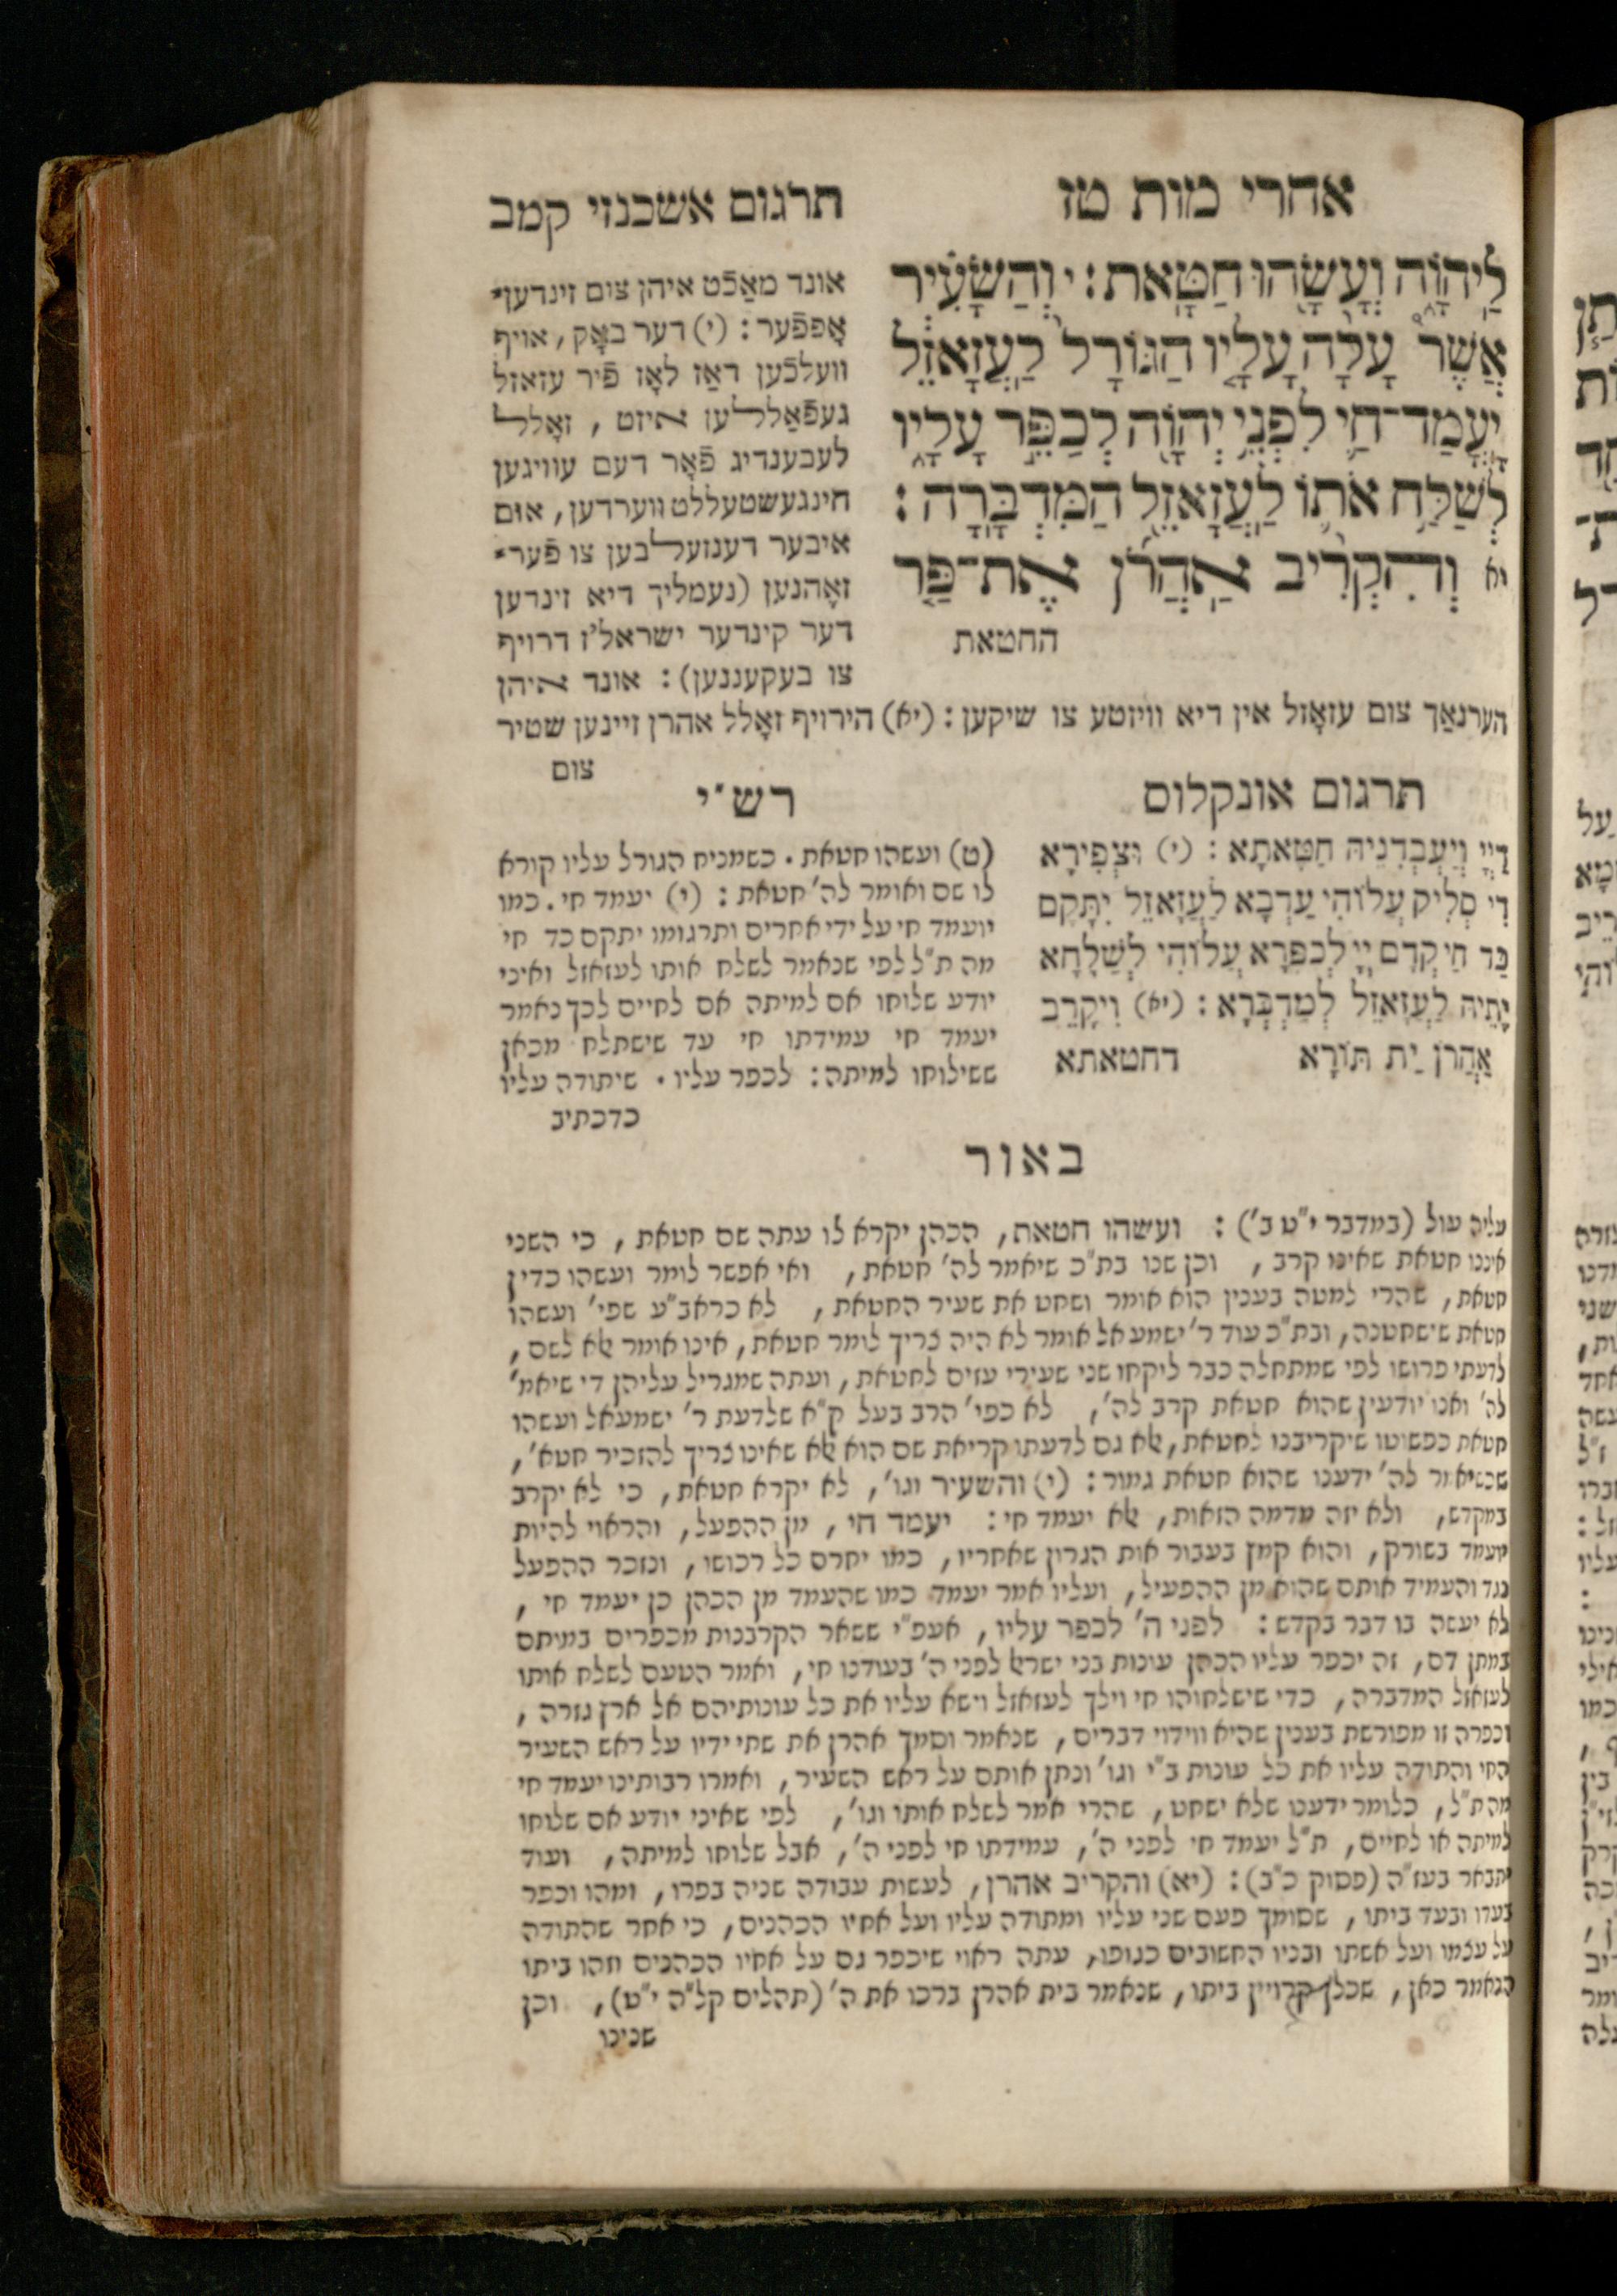 אחרי מות טז
תרגום אשכנזי קמב
לַיהוָֹה וְעָשָׂהוּ חַטָּאת: י וְהַשָּׂעִיר
אֲשֶׁר עָלָה עָלָיו הַגּוֹרָל לַעֲזָאזֵל
יָעֳמַד־חַי לִפְנֵי יְהוָֹה לְכַפֵּר עָלָיו
לְשַׁלַּח אֹתוֹ לַעֲזָאזֵל הַמִּדְבָּרָה:
יא וְהִקְרִיב אַהֲרֹן אֶת־פַּר
החטאת
אונד מאַכֿט איהן צום זינדען־
אָפפֿער: (י) דער באָק, אויף
וועלכֿען דאַז לאָז פֿיר עזאזל
געפֿאַללען איזט, זאָלל
לעבענדיג פֿאָר דעם עוויגען
הינגעשטעללט ווערדען, אום
איבער דענזעלבען צו פֿער־
זאָהנען (נעמליך דיא זינדען
דער קינדער ישראל'ז דרויף
צו בעקעננען): אונד איהן
הערנאַך צום עזאָזל אין דיא וויזטע צו שיקען: (יא) הירויף זאָלל אהרן זיינען שטיר
צום
תרגום אונקלוס
דַיְיָ וְיַעְבְּדִנֵיהּ חַטָּאתָא: (י) וּצְפִירָא
דִי סְלִיק עֲלוֹהִי עַדְבָא לַעֲזָאזֵל יִתָּקַם
כַּד חַי קֳדָם יְיָ לְכַפָּרָא עֲלוֹהִי לְשַׁלָּחָא
יָתֵיהּ לַעֲזָאזֵל לְמַדְבְּרָא: (יא) וִיקָרֵב
אַהֲרֹן יַת תּוֹרָא
דחטאתא
רש"י
(ט) ועשהו חטאת. כשמניח הגורל עליו קורא
לו שם ואומר לה' חטאת: (י) יעמד חי. כמו
יועמד חי על ידי אחרים ותרגומו יתקם כד חי
מה ת"ל לפי שנאמר לשלח אותו לעזאזל ואיני
יודע שלוחו אם למיתה אם לחיים לכך נאמר
יעמד חי עמידתו חי עד שישתלח מכאן
ששילוחו למיתה: לכפר עליו. שיתודה עליו
כדכתיב
באור
עליה עול (במדבר י"ט ב'): ועשהו חטאת, הכהן יקרא לו עתה שם חטאת, כי השני
איננו חטאת שאינו קרב, וכן שנו בת"כ שיאמר לה' חטאת, ואי אפשר לומר ועשהו כדין
חטאת, שהרי למטה בענין הוא אומר ושחט את שעיר החטאת, לא כראב"ע שפי' ועשהו
חטאת שישחטנה, ובת"כ עוד ר' ישמעאל אומר לא היה צריך לומר חטאת, אינו אומר אלא לשם,
לדעתי פרושו לפי שמתחלה כבר ליקחו שני שעירי עזים לחטאת, ועתה שמגריל עליהן די שיאמ'
לה' ואנו יודעין שהוא חטאת קרב לה', לא כפי' הרב בעל ק"א שלדעת ר' ישמעאל ועשהו
חטאת כפשוטו שיקריבנו לחטאת, אלא גם לדעתו קריאת שם הוא אלא שאינו צריך להזכיר חטא',
שכשיאמר לה' ידענו שהוא חטאת גמור: (י) והשעיר וגו', לא יקרא חטאת, כי לא יקרב
במקדש, ולא יזה מדמה הזאות, אלא יעמד חי: יעמד חי, מן ההפעל, והראוי להיות
יועמד בשורק, והוא קמץ בעבור אות הגרון שאחריו, כמו יחרם כל רכושו, ונזכר ההפעל
נגד והעמיד אותם שהוא מן ההפעיל, ועליו אמר יעמד כמו שהעמד מן הכהן כן יעמד חי,
לא יעשה בו דבר בקדש: לפני ה' לכפר עליו, אעפ"י ששאר הקרבנות מכפרים במיתם
במתן דם, זה יכפר עליו הכהן עונות בני ישראל לפני ה' בעודנו חי, ואמר הטעם לשלח אותו
לעזאזל המדברה, כדי שישלחוהו חי וילך לעזאזל וישא עליו את כל עונותיהם אל ארץ גזרה,
וכפרה זו מפורשת בענין שהיא ווידוי דברים, שנאמר וסמך אהרן את שתי ידיו על ראש השעיר
החי והתודה עליו את כל עונות ב"י וגו' ונתן אותם על ראש השעיר, ואמרו רבותינו יעמד חי
מהת"ל, כלומר ידענו שלא ישחט, שהרי אמר לשלח אותו וגו', לפי שאיני יודע אם שלוחו
למיתה או לחיים, ת"ל יעמד חי לפני ה', עמידתו חי לפני ה', אבל שלוחו למיתה, ועוד
יתבאר בעז"ה (פסוק כ"ב): (יא) והקריב אהרן, לעשות עבודה שניה בפרו, ומהו וכפר
בעדו ובעד ביתו, שסומך פעם שני עליו ומתודה עליו ועל אחיו הכהנים, כי אחר שהתודה
על עצמו ועל אשתו ובניו החשובים כגופו, עתה ראוי שיכפר גם על אחיו הכהנים וזהו ביתו
הנאמר כאן, שכלן קרויין ביתו, שנאמר בית אהרן ברכו את ה' (תהלים קל"ה י"ט), וכן
שנינו